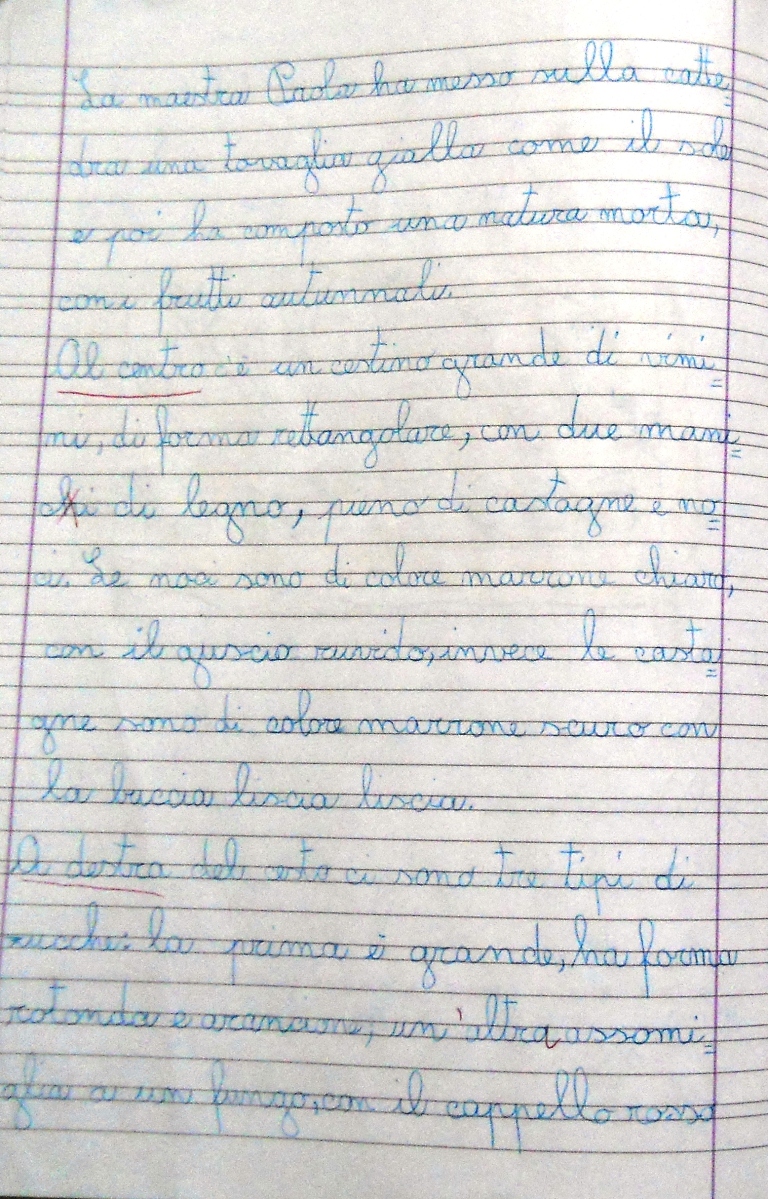 La maestra Paola ha messo sulla catte=
dra una tovaglia gialla come il sole
e poi ha composto una natura morta,
con i frutti autunnali.
Al centro c'è un cestino grande di vimi=
ni, di forma rettangolare, con due mani=
ci di legno, pieno di castagne e no=
ci. Le noci sono di colore marrone chiaro,
con il guscio ruvido, invece le casta=
gne sono di colore marrone scuro con
la buccia liscia liscia.
A destra del cesto ci sono tre tipi di
zucche: la prima è grande, ha forma
rotonda e arancione, un'altra assomi=
glia a un fungo, con il cappello rosso